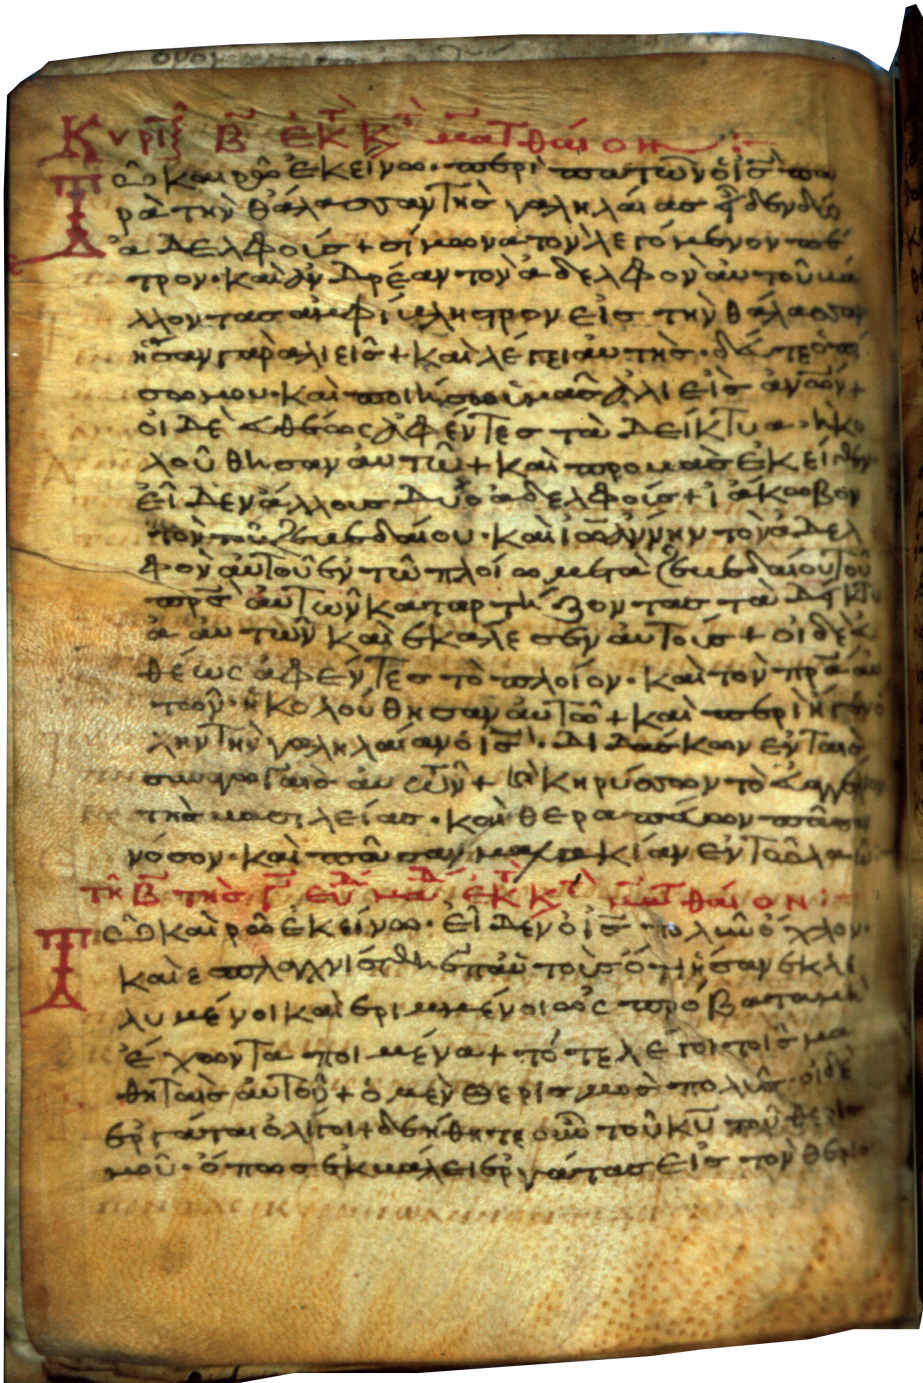 Κυρι Β ἐκ Κτ ματθαίον
Τῶ καιρῶ ἐκείνω· περὶπατῶν ὁ ις πα
ρὰ τὴν θάλασσαν τῆς γαληλαίας εἶδεν δύο
ἀδελφούς + σίμωνα τον λεγόμενον πέ
τρον· καὶ ἀνδρέαν τὸν ἀδελφὸν ἀυτοῦ βά
λλοντας ἀμφίβληστρον εἰς τὴν θάλασσαν
ἦσαν γὰρ ἁλιεῖς + καὶ λέγει αὐτης· δεῦτε ὀπί
σω μου· καὶ ποιήσω ὑμᾶς ἁλιεῖς ἀνων +
οἱ δὲ εὐθέως ἀφέντες τὰ δείκτυα· ἠκο
λούθησαν ἀυτῶ + καὶ προβὰς ἐκείθεν·
εἶδεν άλλους δύο ἀδελφούς + ἰάκωβον
τὸν τοῦ ζεβεδαίου· καὶ ἰωάννην τὸν ἀδελ
φὸν ἀυτοῦ ἐν τῶ πλοίω μετὰ ζεβεδαίου τοῦ
πρς ἀυτῶν καταρτίζοντας τὰ δίκτυ
α ἀυτῶν καὶ εκάλεσεν ἀυτούς + οἱ δὲ εὐ
θέως ἀφέντες τὸ πλοίον· καὶ τὸν πρα ἀυ
τῶν· ἠκολούθησαν ἀυτῶ + καὶ περιῆγεν ὅ
λην τὴν γαληλαίαν ὁ ις· διδάσκων ἐν ταῖς
συναγωγαῖς ἀυτῶν + καὶ κηρύσσων τὸ εὐαγγέλιον
τῆς βασιλείας· καὶ θεραπεύων πᾶσαν
νόσον· καὶ πᾶσαν μαλακίαν ἐν τῶ λαῶ
τῆ Β τῆς Γ εβδ μαδ ἐκ Κτ ματθαίον
Τῶ καιρῶ ἐκείνω· εἶδεν ὁ ις πολὺν όχλον·
καὶ εσπλαγχνίσθη ἐπ ἀυτοὺς ὅτι ἦσαν εκλε
λυμένοι καὶ ερριμμένοι ὡς πρόβατα μὴ
έχοντα ποιμένα + τότε λέγει τοῖς μα
θηταῖς ἀυτοῦ + ὁ μὲν θερισμὸς πολὺς· οἱ δὲ
ἐργάται ὀλίγοι + δεήθητε οὖν τοῦ κυ τοῦ θερισ
μοῦ· ὅπως εκβάλει ἐργάτας εἰς τὸν θερισ